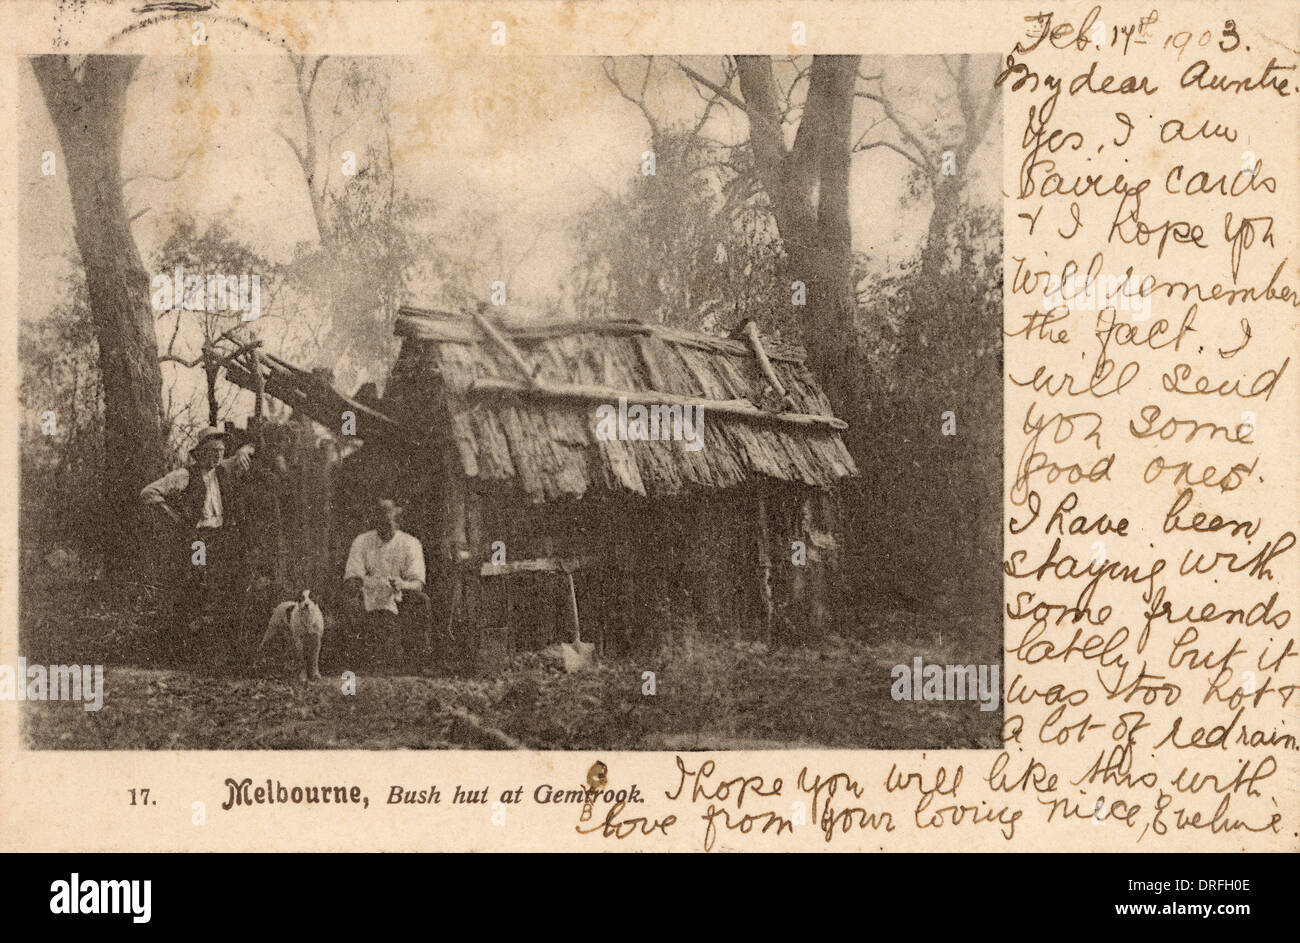 Feb. 17th 1903.
My dear Auntie.
Yes, I am
Saving cards
& I hope you
will remember
the fact. I
will send
you some
good ones.
I have been
staying with
some friends
lately, but it
was too hot &
a lot of red rain.
I hope you will like this, with
love from your loving niece, Eveline.
17. Melbourne, Bush hut at Gembrook.
alamy
a
alamy stock photo
DRFH0E
www.alamy.com